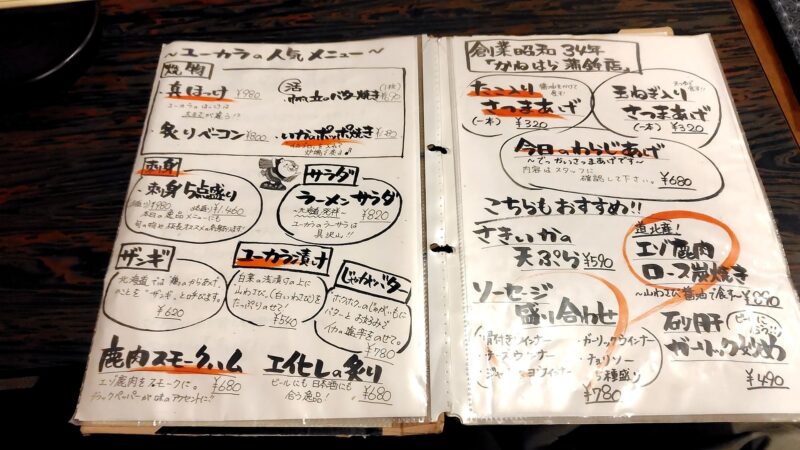 ～ユーカラの人気メニュー～
焼物
・真ほっけ ¥980
ユーカラのほっけは
・炙りベーコン ¥800
活
・帆立のバター焼き
・いかのポッポ焼き
刺身
刺身5点盛り
¥1,460
本日の逸品メニューにも
サラダ
ラーメンサラダ
～北海道発祥～ ¥820
ユーカラのラーサラは
具沢山!!
ザンギ
北海道では「鶏のからあげ」
のことを"ザンギ"と呼びます。
¥620
ユーカラ漬け
白菜の浅漬けの上に
山わさび(白いわさび)を
たっぷりのせて!
¥540
じゃがバター
ホクホクのじゃがいもに
バターとお好みで
イカの塩辛をのせて。
¥780
鹿肉スモークハム
エゾ鹿肉をスモークに。 ¥680
ブラックペッパーが味のアクセントに!!
エイヒレの炙り
ビールにも日本酒にも
合う逸品! ¥680
創業昭和34年
「かねはら蒲鉾店」
たこ入り
さつまあげ
(一本) ¥320
玉ねぎ入り
さつまあげ
(一本) ¥320
今日のわらじあげ
～でっかいさつまあげです～
内容はスタッフに
確認して下さい。 ¥680
こちらもおすすめ!!
さきいかの
天ぷら ¥590
道北産!
エゾ鹿肉
ロース炭焼き
～山わさび醤油で食す～
ソーセージ
盛り合わせ
・骨付きウインナー
・チーズウインナー
・ガーリックウインナー
・チョリソー
5種盛り
¥780
砂肝
ガーリック炒め
¥490